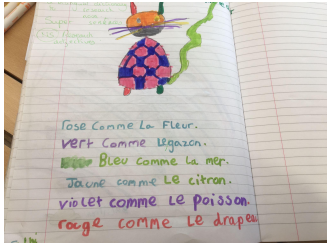 rose comme la fleur.
vert comme legazon.
Bleu comme la mer.
Jaune comme le citron.
violet comme le poisson.
rouge comme le drapeau